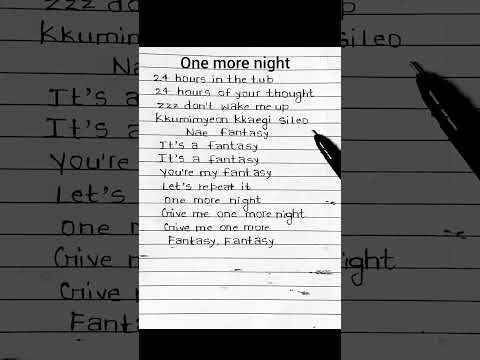 One more night
24 hours in the tub
24 hours of your thought
zzz don't wake me up
Kkumimyeon kkaegi sileo
Nae fantasy
It's a fantasy
It's a fantasy
You're my fantasy
Let's repeat it
one more night
Give me one more night
Give me one more
Fantasy, Fantasy